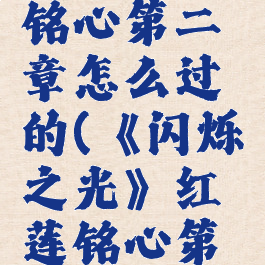 铭心第二
章怎么过
的(《闪烁
之光》红
莲铭心第